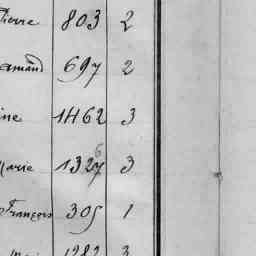 Pierre 803 2
amand 697 2
ine 1462 3
Marie 1327 3
François 305 1
1282 3